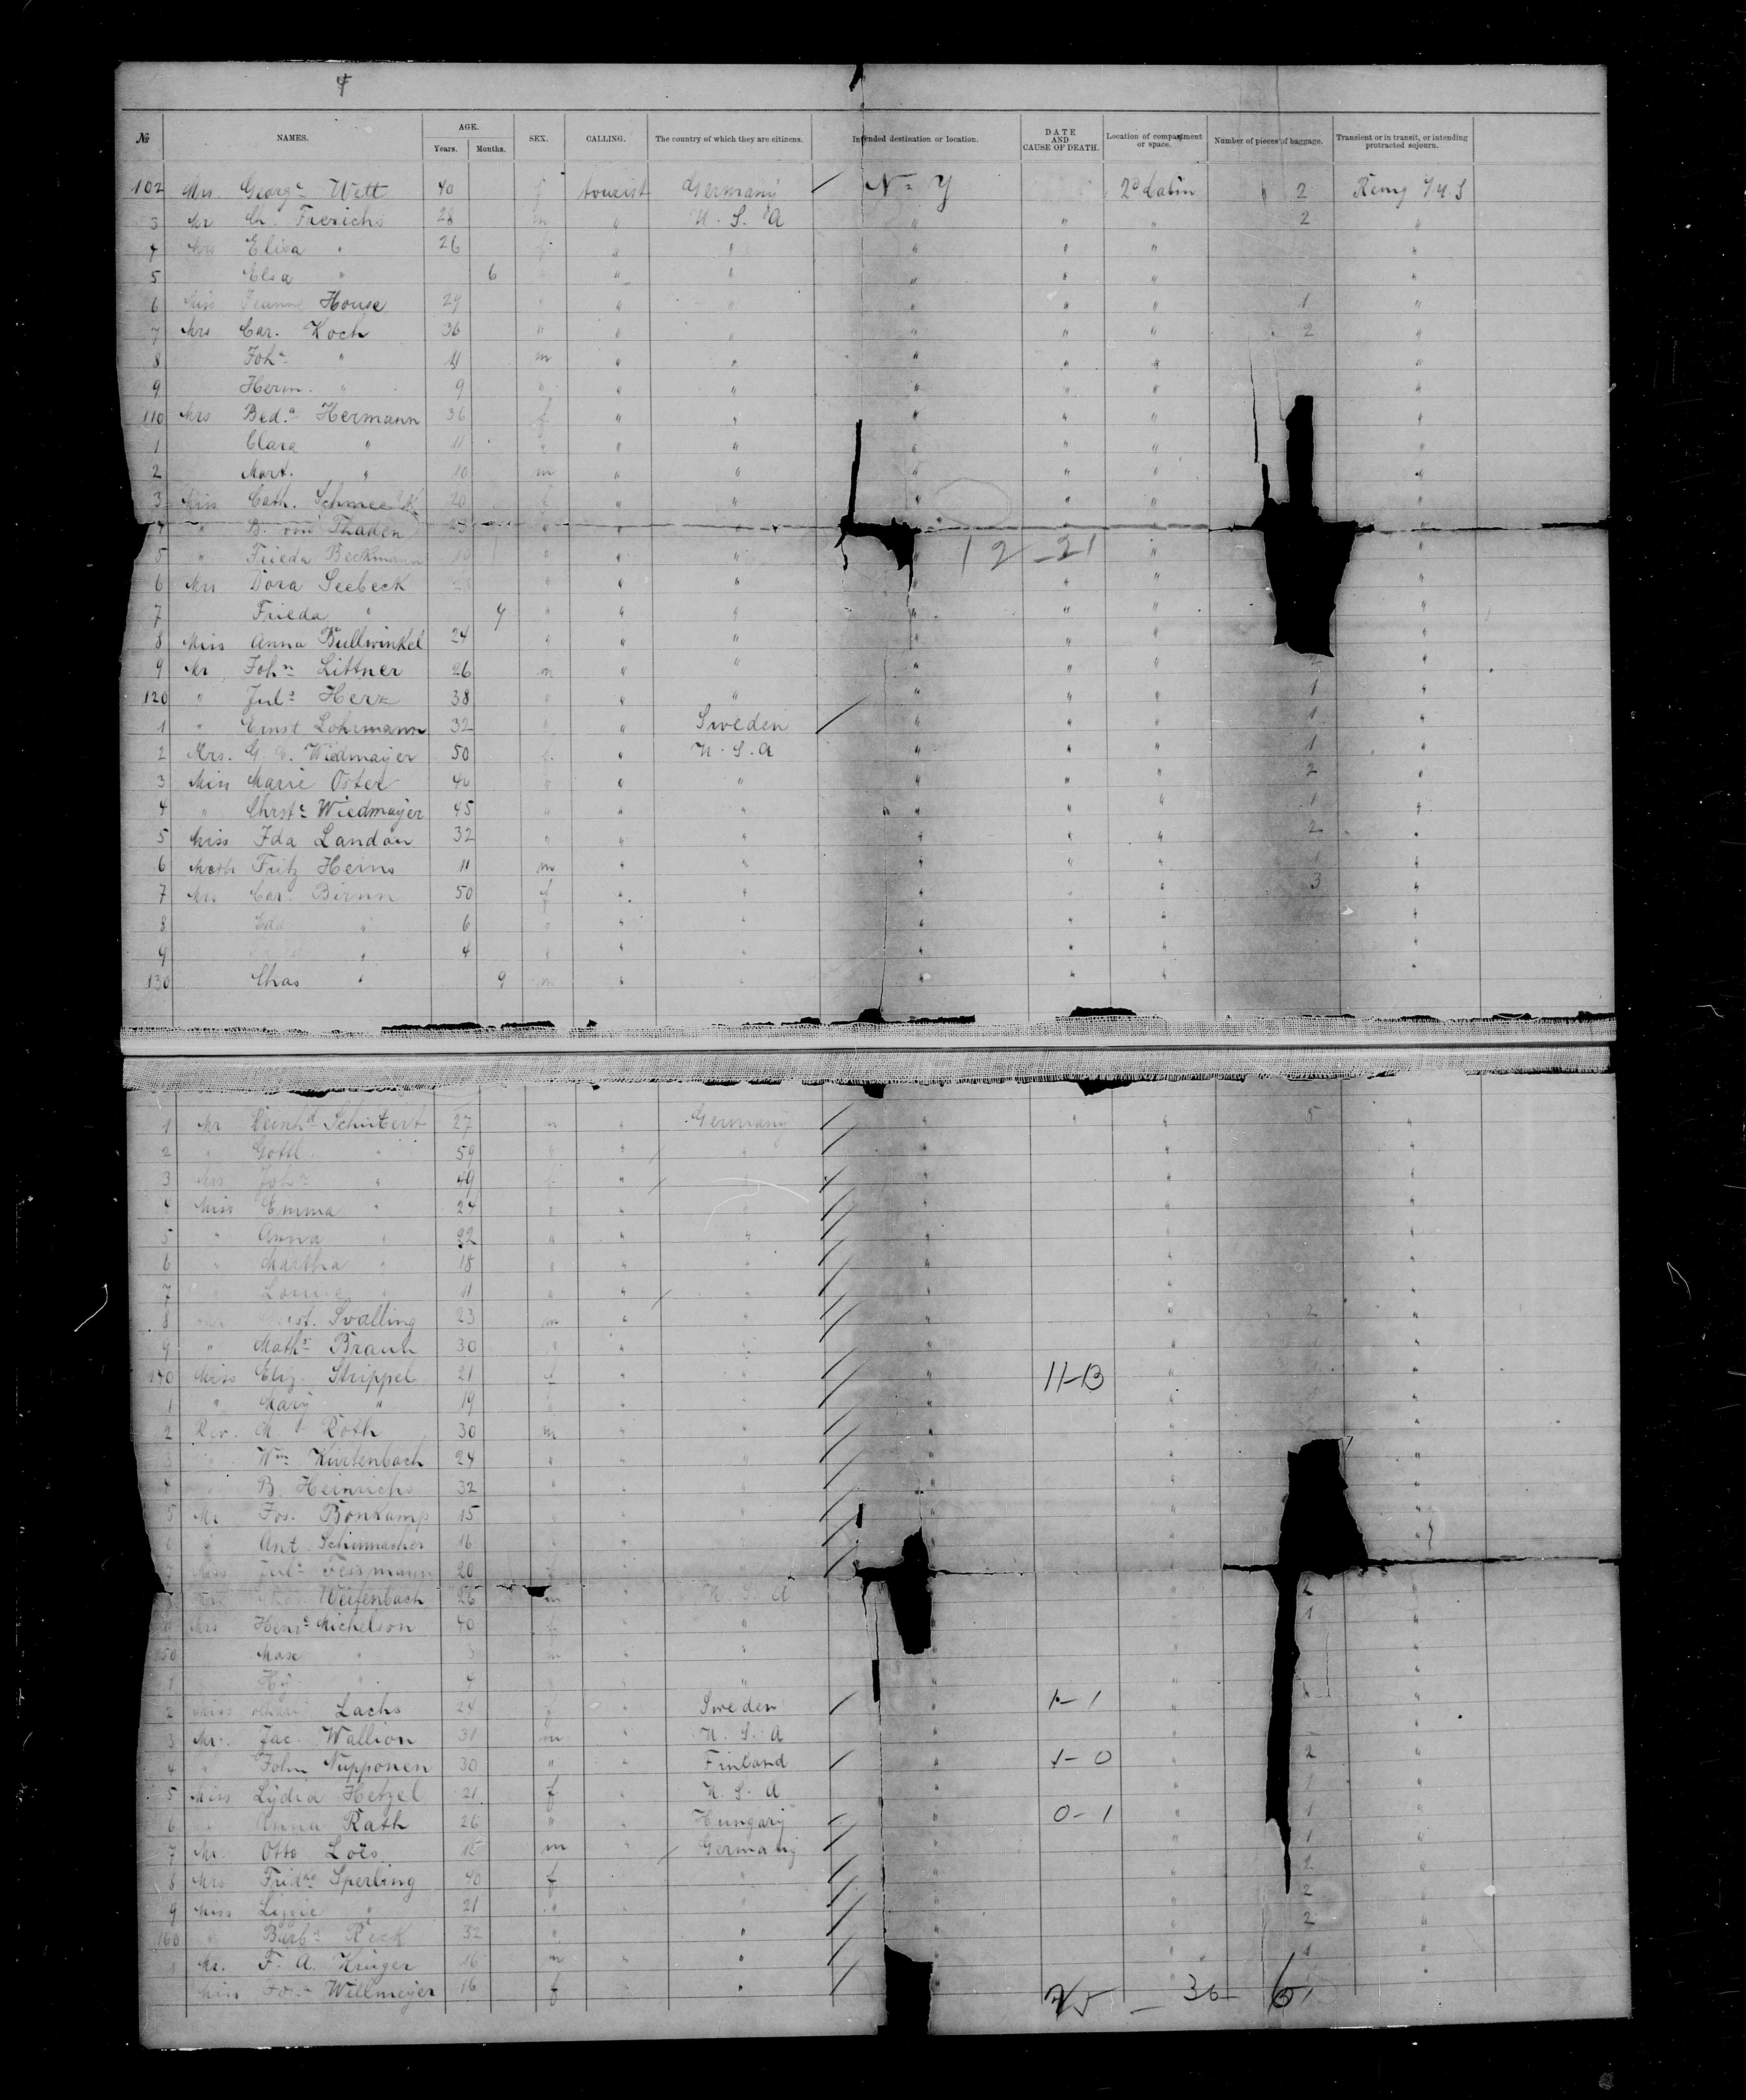 4
№ NAMES. AGE. Years. Months. SEX. CALLING. The country of which they are citizens. Intended destination or location. DATE AND CAUSE OF DEATH. Location of compartment or space. Number of pieces of baggage. Transient or in transit, or intending protracted sojourn.
102 Mrs. Georg^e Wett 40 f tourist Germany / N. Y 2^d Cabin 2
3 Mr Ch. Frerichs 28 m " U. S. A " " " 2 "
4 Mrs Elisa " 26 f " " " " " "
5 Elsa " 6 " " " " " "
6 Miss House 29 " " " " " " 1 "
7 Mrs Car. Koch 36 " " " " " " 2 "
8 Joh^n " 11 m " " " " " "
9 Herm. " 9 " " " " " " "
110 Mrs Bed^a Hermann 36 f " " " " " "
1 Clara " 11 " " " " " " "
2 Mart. " 10 m " " " " " "
3 Miss Cath. 20 f " " " " " "
4 " B. von Thaden 25 " " " " "
5 " Frieda Beckmann 19 " " " " 12-21 " "
6 Mrs Dora Seebeck 28 " " " " " " "
7 Frieda " 4 " " " " " " "
8 Miss Anna Bullwinkel 24 " " " " " " "
9 Mr Joh^n Littner 26 m " " " " " 2 "
120 " Jul^s Herz 38 " " " " " " 1 "
1 " Ernst Lohrmann 32 " " Sweden / " " " 1 "
2 Mrs. G. Wiedmayer 50 f. " U. S. A " " " 1 "
3 Miss Marie Oster 40 " " " " " " 2 "
4 " Christ^e Wiedmayer 45 " " " " " " 1 "
5 Miss Ida Landau 32 " " " " " " 2 "
6 Mastr Fritz Heins 11 m " " " " " 1 "
7 Mrs Car. Birnn 50 f " " " " " 3 "
8 Edd " 6 " " " " " " "
9 " 4 " " " " " " "
130 Chas " 9 m " " " " " "
1 Mr Reinh^d Schubert 27 m " Germany / " " " 5 "
2 " Gottl. " 59 " " " / " " "
3 Mrs Joh^a " 49 f " " / " " "
4 Miss Emma " 24 " " " / " " "
5 " Anna " 22 " " " / " " "
6 " Martha " 18 " " " / " " "
7 " Louise " 11 " " " / " " "
8 Svalling 23 m " " / " " 2 "
9 " Math^s Braun 30 " " " / " " "
140 Miss Eliz. Strippel 21 f " " / " 11-13 " "
1 " Mary " 19 " " " / " " 1 "
2 Rev. M. Roth 30 m " " / " " "
3 " W^m Kurtenbach 24 " " " / " " "
4 " B. Heinrichs 32 " " " / " " "
5 Mr Jos. Bonkamp 15 " " " / " "
6 " Ant. Schumacher 16 " " " / " "
7 Miss Jul^a Tessmann 20 f " " / " "
8 Weifenbach 26 m " U. S. A " 2 "
9 Mrs Henr^e Michelson 40 f " " " 1 "
150 Max " 3 m " " " " "
1 Hy " 4 " " " " " "
2 Miss Lachs 24 f " Sweden / 1-1 " "
3 Mr. Jac. Wallion 31 m " U. S. A " " "
4 " John Nupponen 30 " " Finland / " 1-0 " 2 "
5 Miss Lydia Hetzel 21 f " U. S. A " " 1 "
6 " Anna Rath 26 " " Hungary / " 0-1 " 1 "
7 Mr. Otto Loës 15 m " Germany / " " 1 "
8 Mrs Frid^ke Sperling 40 f " / " " 2 "
9 Miss Lizzie " 21 " " " / " " 2 "
160 " Barb^a Reck 32 " " / " " 2 "
1 Mr. F. A. Krüger 16 m " " / " " 1 "
Miss Jos^a Willmeyer 16 f " " / " " "
25 - 36 61